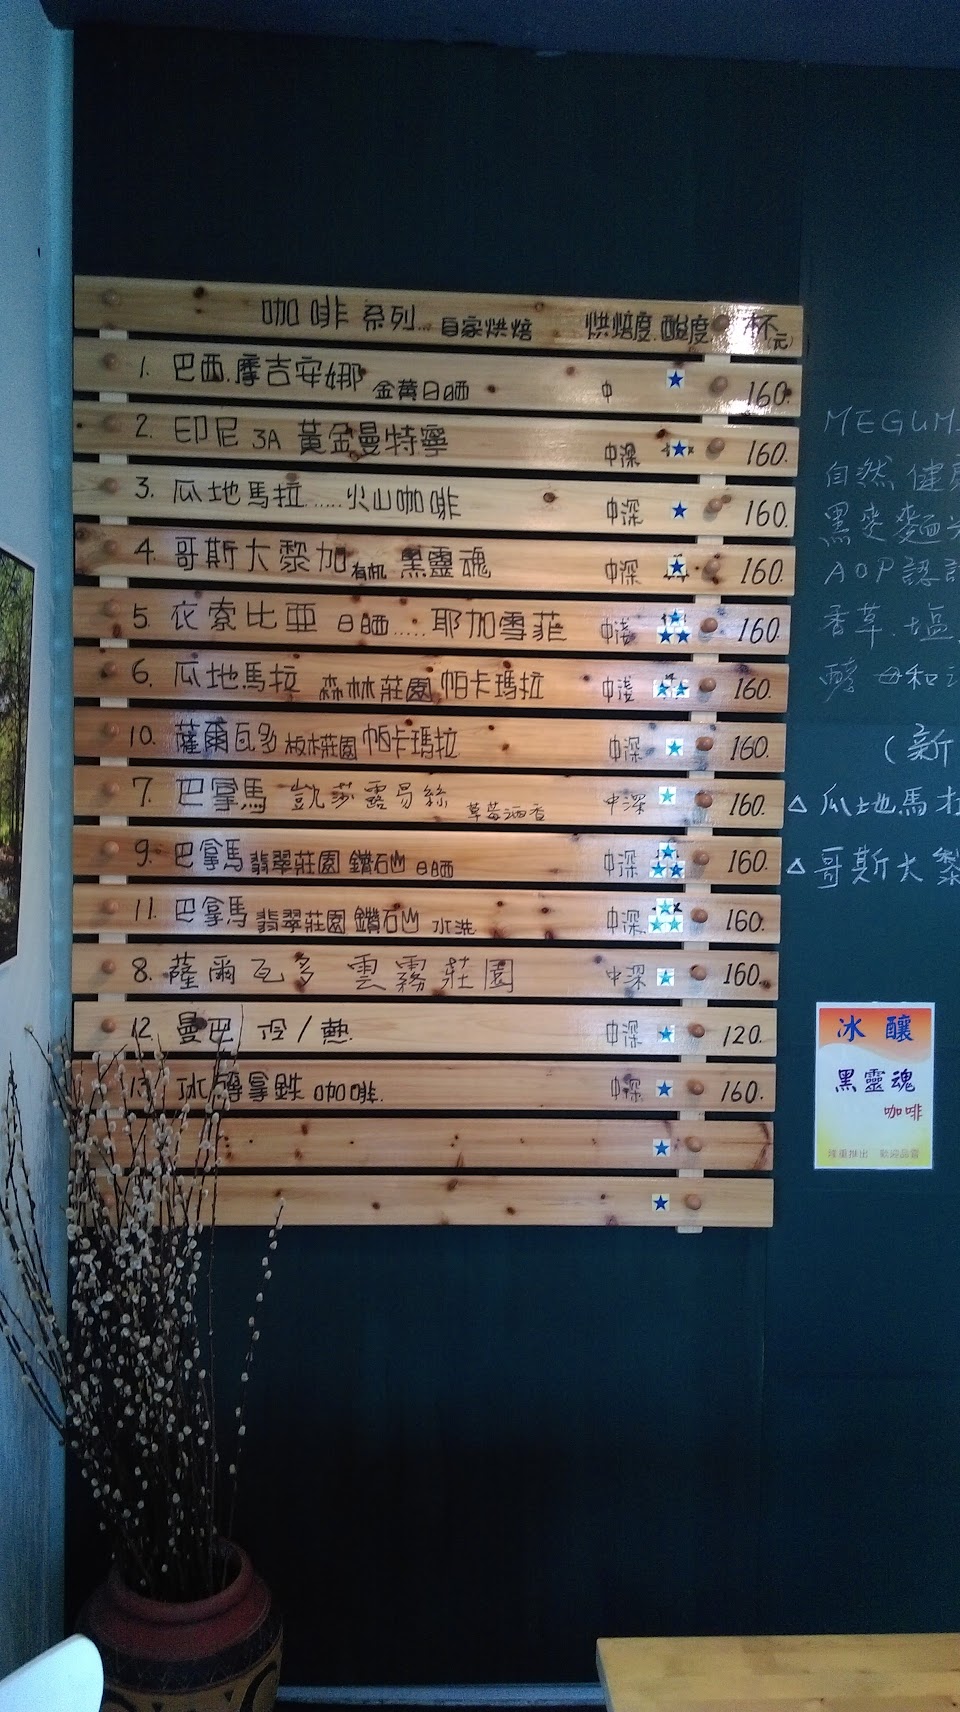 咖啡 系列... 自家烘焙 烘焙度.酸度 杯(元)
1. 巴西.摩吉安娜 金黃日晒 中 160.
2. 印尼 3A 黃金曼特寧 中深 160.
3. 瓜地馬拉......火山咖啡 中深 160.
4. 哥斯大黎加 有机 黑靈魂 中深 160.
5. 衣索比亜 日晒.....耶加雪菲 中淺 160.
6. 瓜地馬拉 森林莊園 帕卡瑪拉 中淺 160.
10. 薩爾瓦多 板木莊園 帕卡瑪拉 中深 160.
7. 巴拿馬 凱莎露易絲 草莓酒香 中深 160.
9. 巴拿馬 翡翠莊園 鑽石山 日晒 中深 160.
11. 巴拿馬 翡翠莊園 鑽石山 水洗 中深 160.
8. 薩爾瓦多 雲霧莊園 中深 160.
12. 曼巴 冷/熱. 中深 120.
13. 冰磚拿鉄 咖啡. 中深 160.
MEGUM
自然 健
黑麥麵
AOP認
香草.塩
酵母和
(新
△瓜地馬拉
△哥斯大黎
冰釀
黑靈魂
咖啡
隆重推出 歡迎品嘗